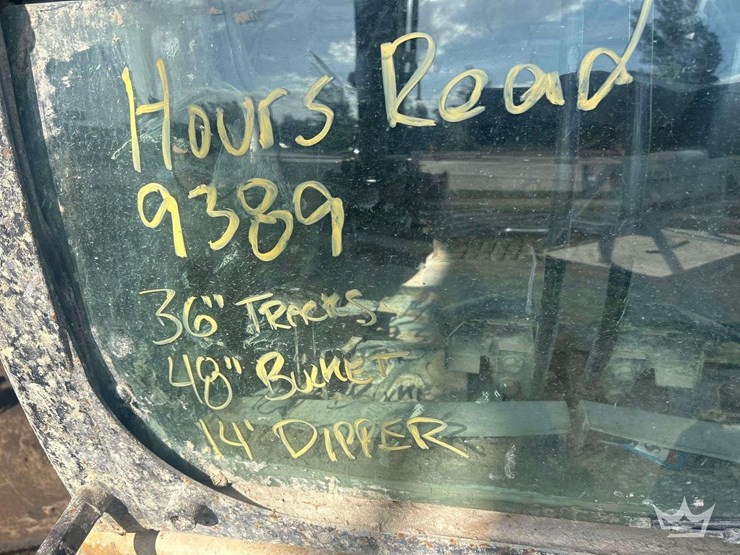 Hours Read
9389
36" TRACKS
48" BUCKET
14' DIPPER